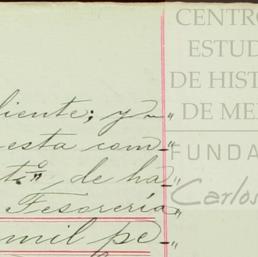 CENTRO
ESTUD
DE HIST
DE ME
FUNDA
Carlos
diente; y-"
esta com-"
to" de ha
Tesorería
mil pe-"